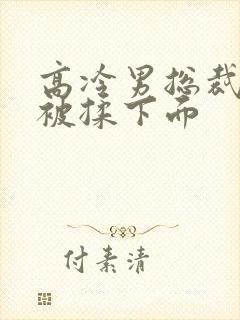 高冷男总裁
被揉下而
付素清